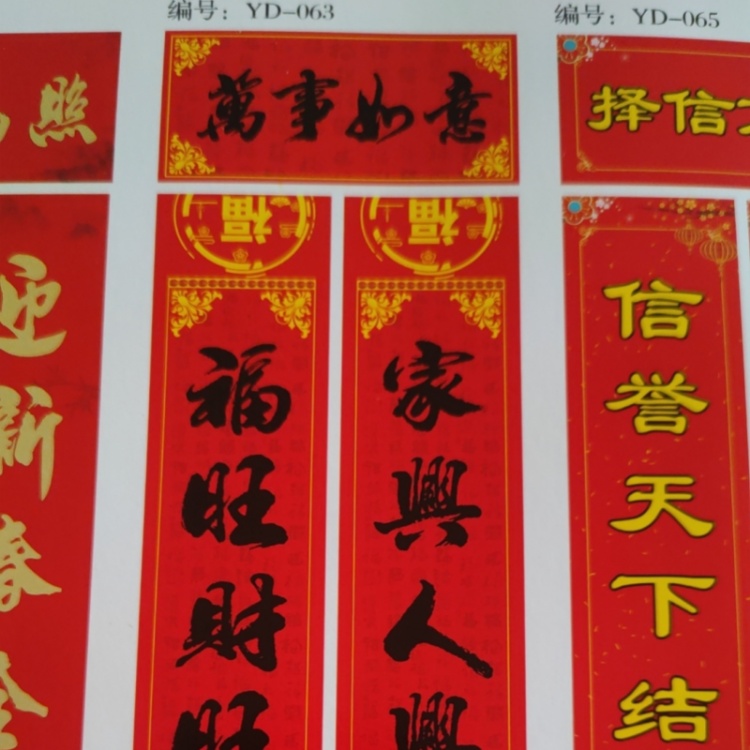 编号：YD-063
编号：YD-065
照
萬事如意
择信
迎新春
福旺财旺
家興人興
信誉天下结
福
福